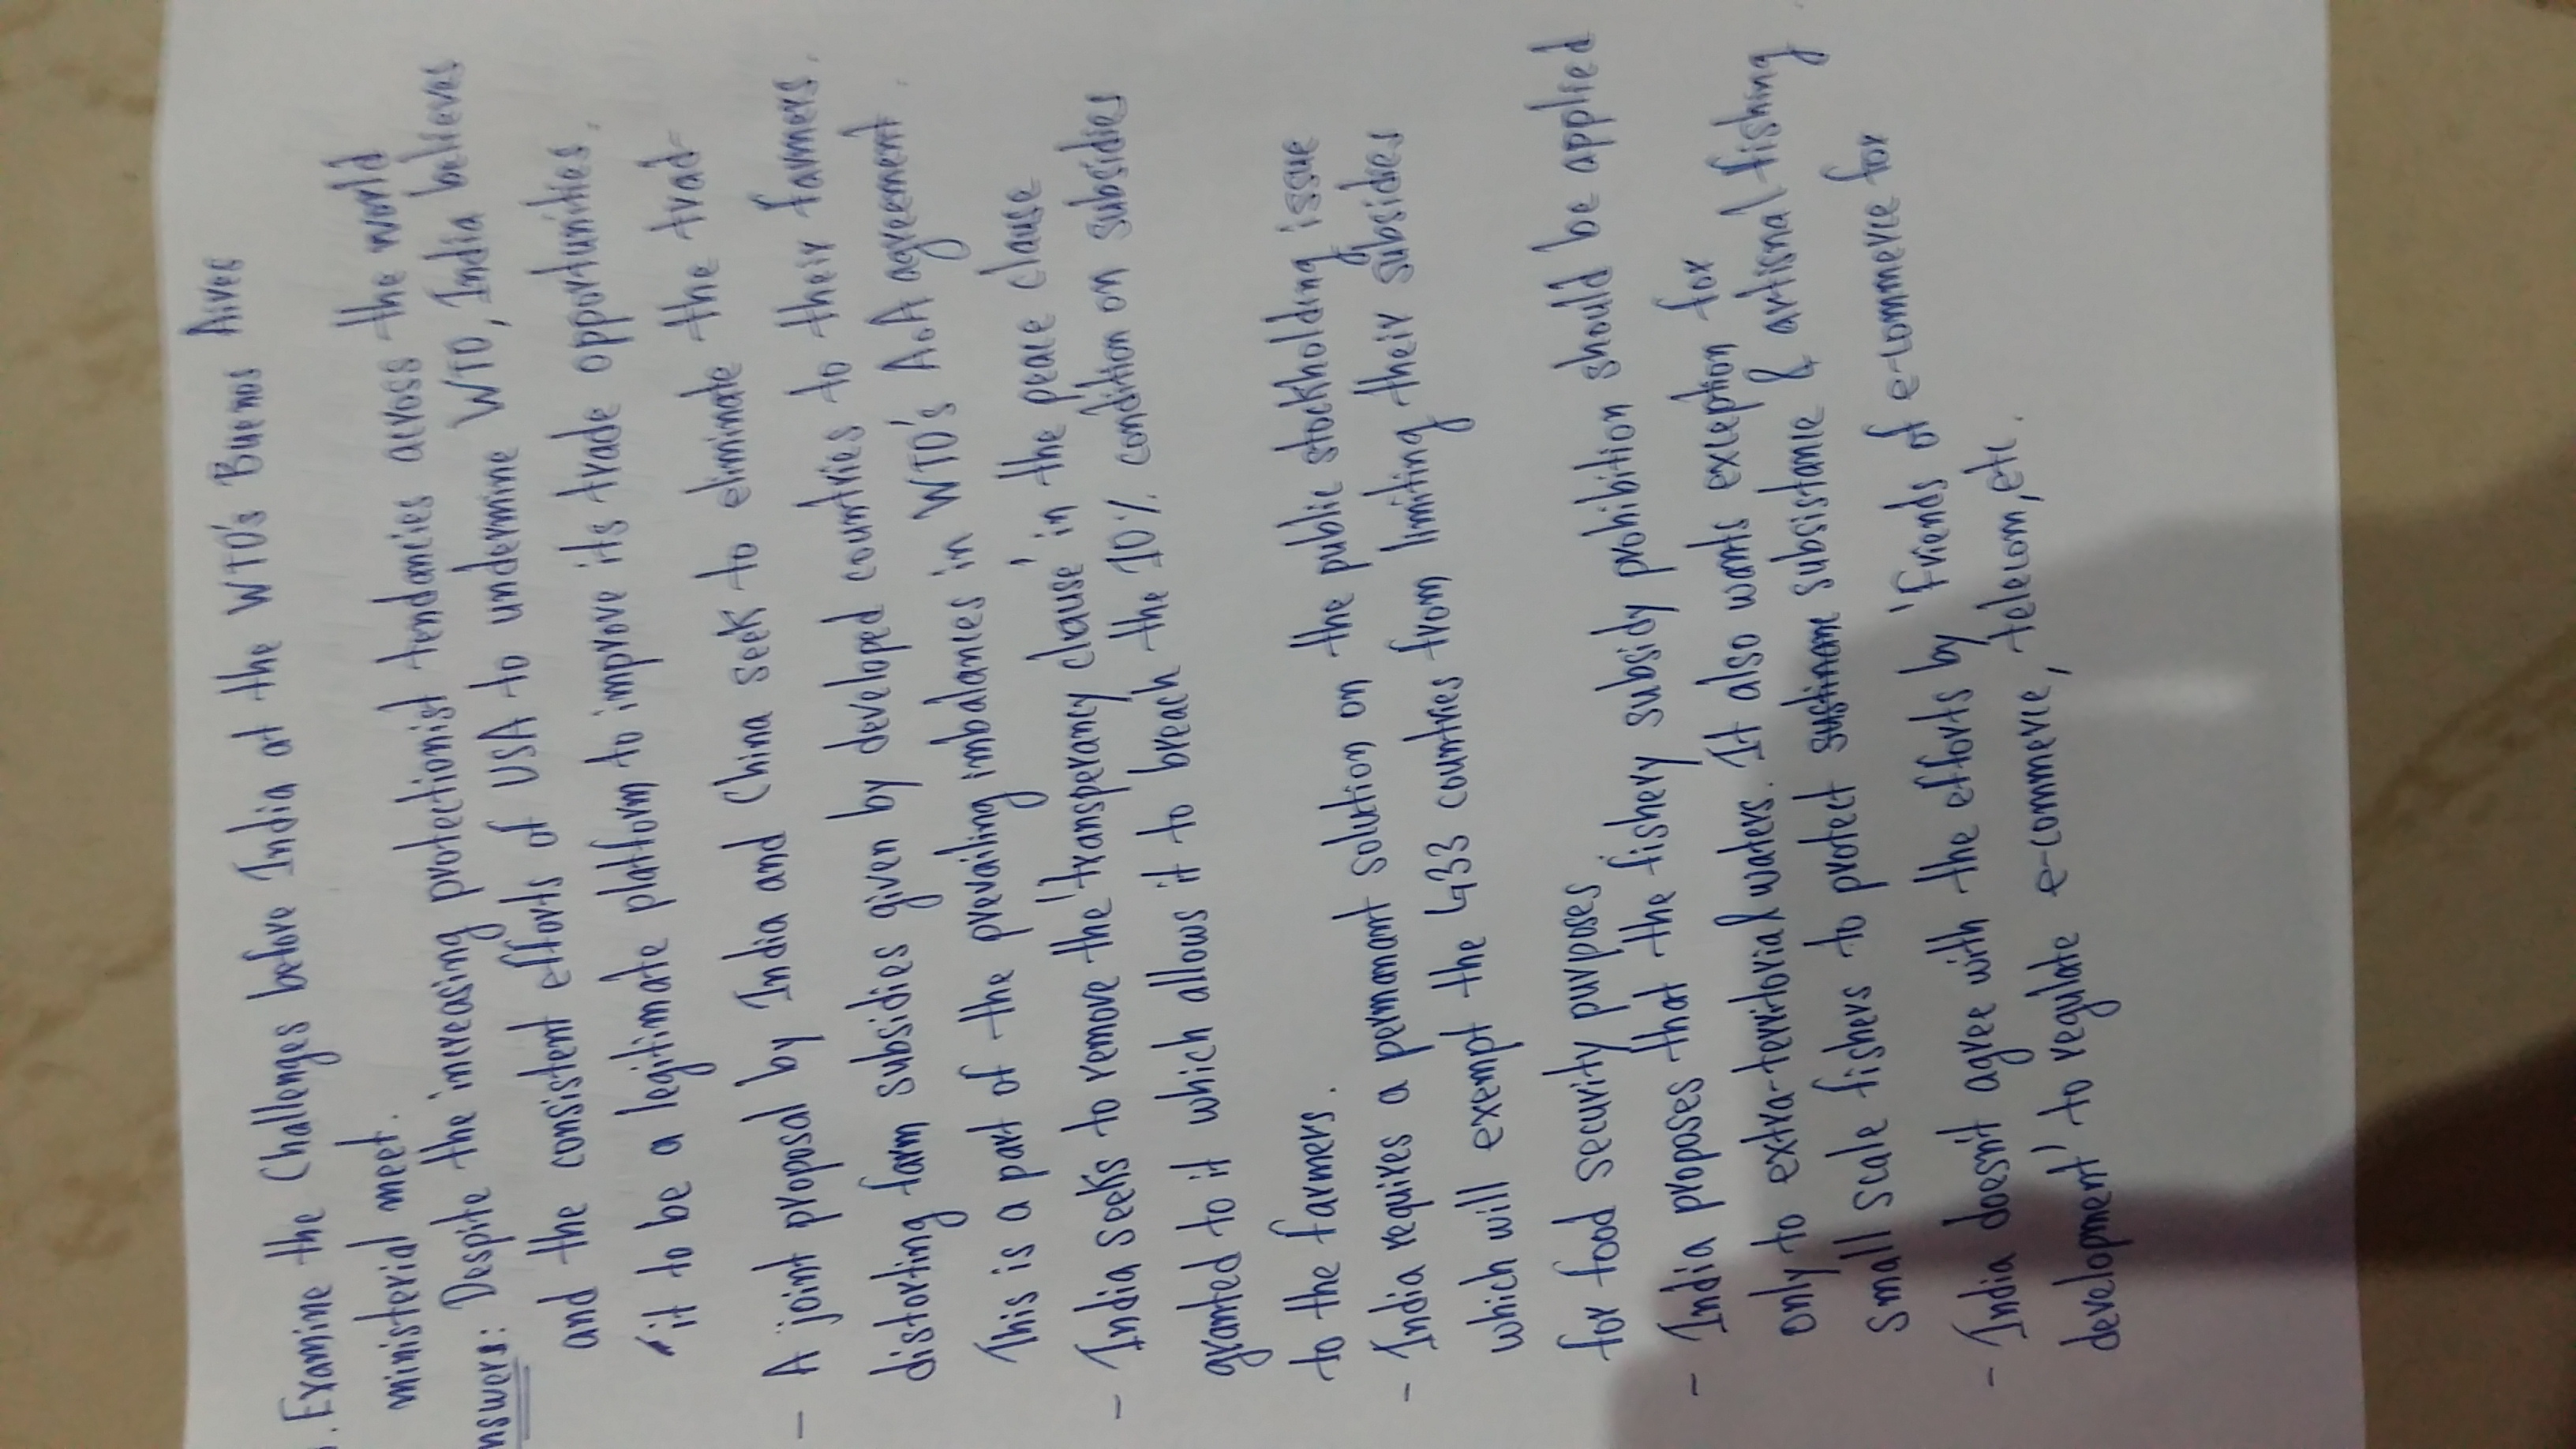 . Examine the Challenges before India at the WTO's Buenos Aires
ministerial meet.
nswers: Despite the increasing protectionist tendancies across the world
and the consistent efforts of USA to undermine WTO, India believes
it to be a legitimate platform to improve its trade opportunities.
- A joint proposal by India and China seek to eliminate the trad-
distorting farm subsidies given by developed countries to their farmers.
This is a part of the prevailing imbalances in WTO's AoA agreement.
- India seeks to remove the 'transperancy clause' in the peace clause
granted to it which allows it to breach the 10% condition on subsidies
to the farmers.
- India requires a permanant solution on the public stockholding issue
which will exempt the G33 countries from limiting their subsidies
for food security purposes
- India proposes that the fishery subsidy prohibition should be applied
only to extra-terrirtorial waters. It also wants exception for
Small scale fishers to protect subsistance & artisnal fishing
- India doesn't agree with the efforts by 'Friends of e-commerce for
development' to regulate e-commerce, telecom, etc.